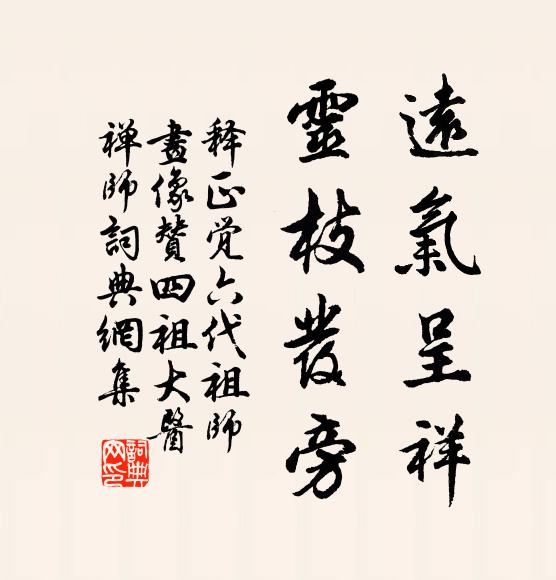 遠氣呈祥
靈枝發旁
释正觉六代祖師
畫像贊四祖大醫
禅師詞典網集
詞典
网印